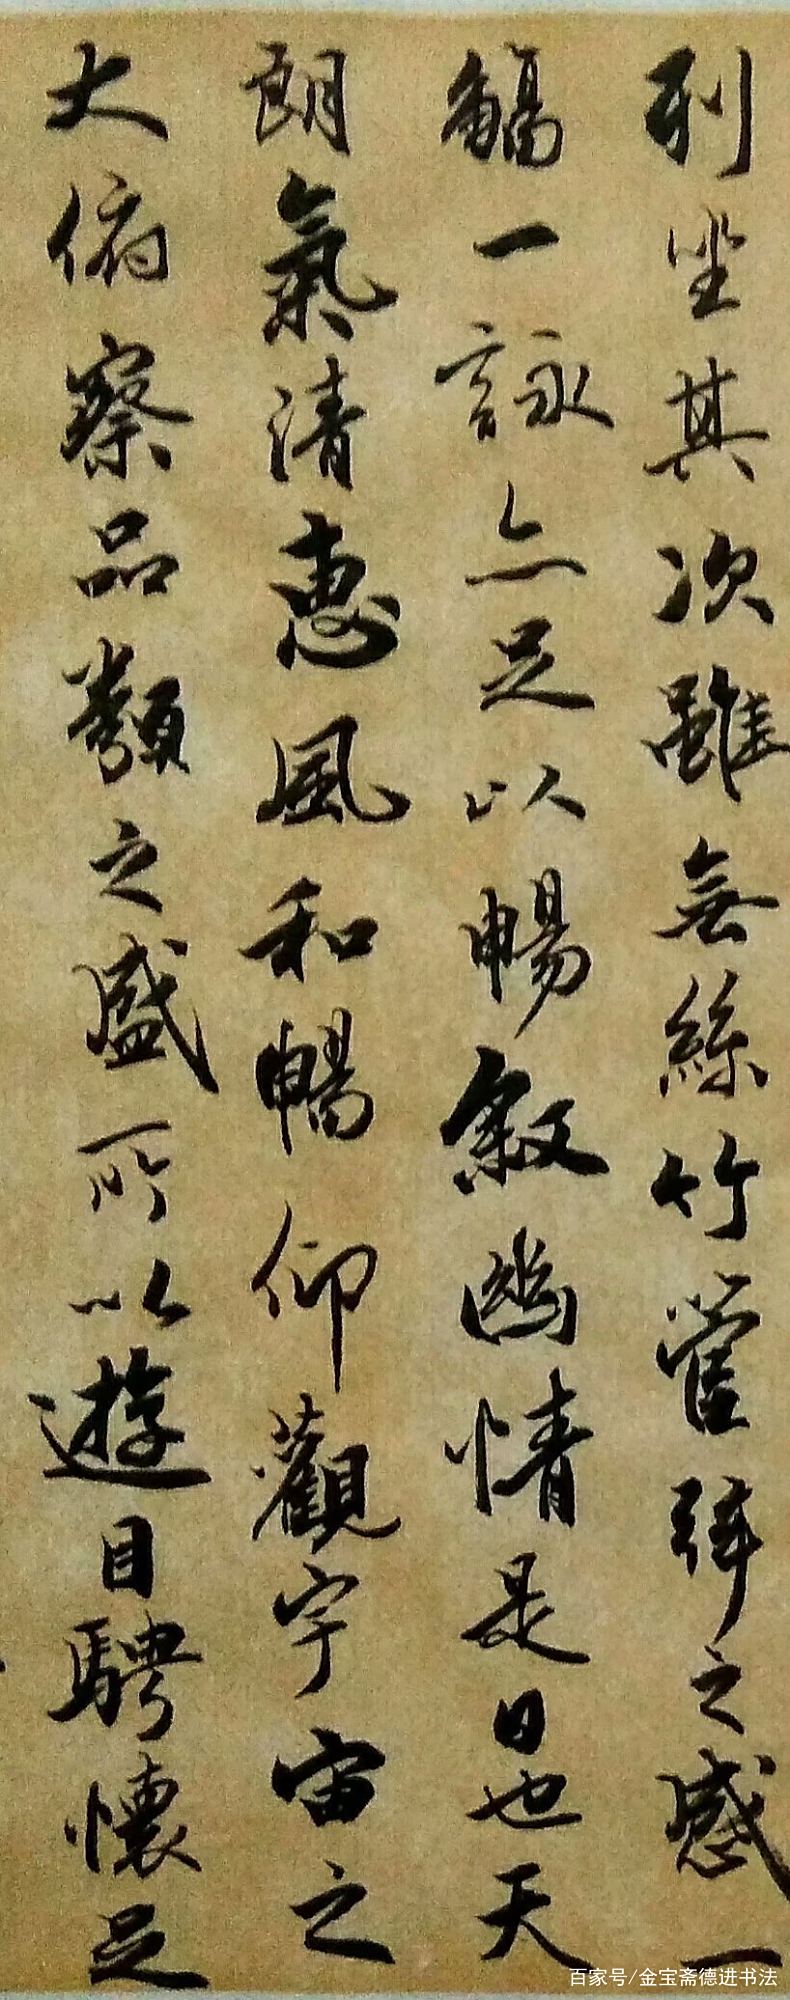 列坐其次雖無絲竹管弦之感一
觴一詠亦足以暢叙幽情是日也天
朗氣清惠風和暢仰觀宇宙之
大俯察品類之盛所以遊目騁懷足
百家号/金宝斋德进书法